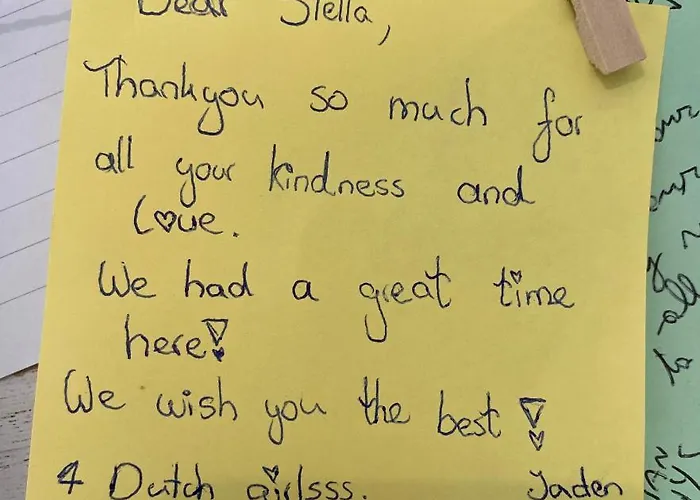 Dear Stella,
Thankyou so much for
all your kindness and
love.
We had a great time
here!
We wish you the best!
4 Dutch girlsss. Jaden
all
to